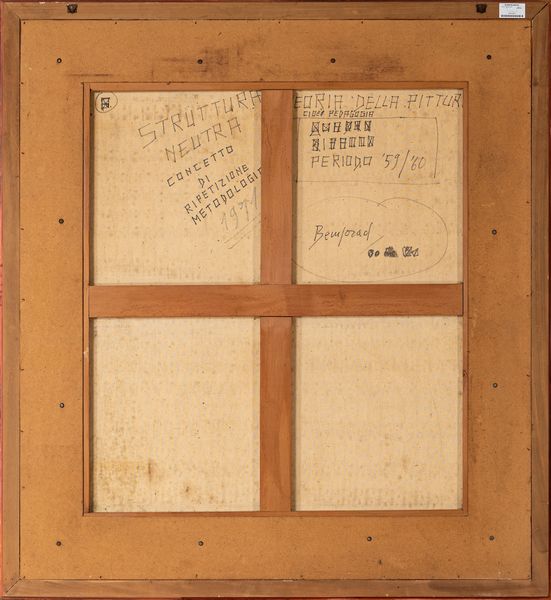 STRUTTURA
NEUTRA
CONCETTO
DI
RIPETIZIONE
METODOLOGIC
EORIA DELLA PITTUR
CIOE' PEDAGOGIA
PERIODO '59/'60